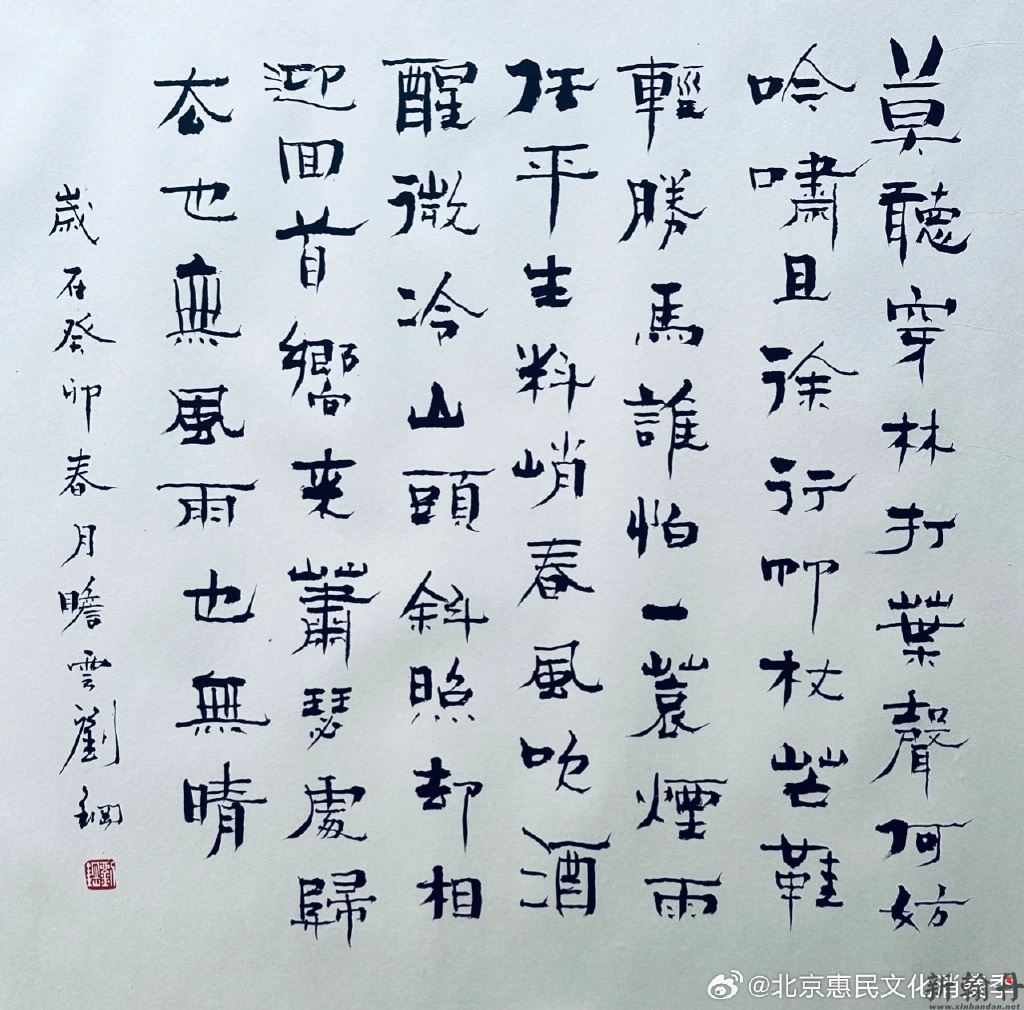 莫聽穿林打葉聲何妨
吟嘯且徐行竹杖芒鞋
輕勝馬誰怕一蓑煙雨
任平生料峭春風吹酒
醒微冷山頭斜照却相
迎回首嚮来蕭瑟處歸
去也無風雨也無晴
歲在癸卯春月瞻雲劉鋼
@北京惠民文化消费季
新翰丹
www.xinhandan.net